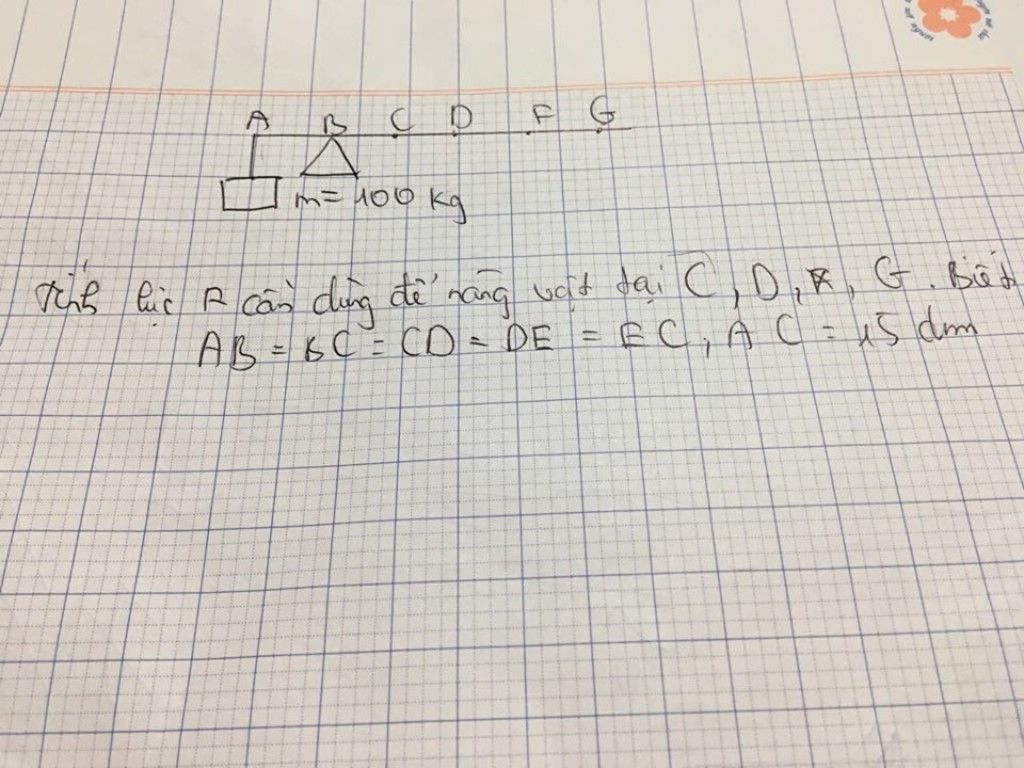 A B C D F G
m = 100 kg
Tính lực F cần dùng để nâng vật tại C, D, F, G. Biết
AB = BC = CD = DE = EC, AC = 15 dm